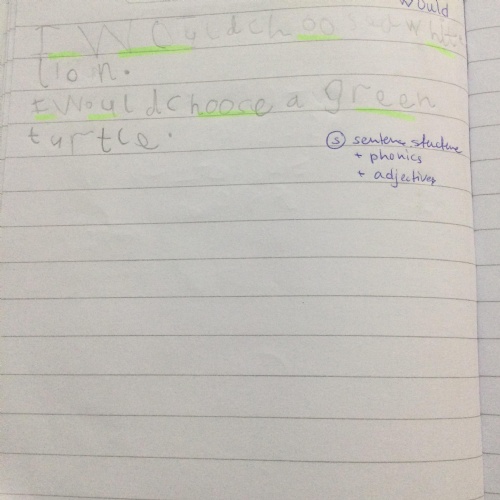 would
I Would choose a white
lion.
I Would choose a green
turtle.
(S) sentence structure
+ phonics
+ adjectives